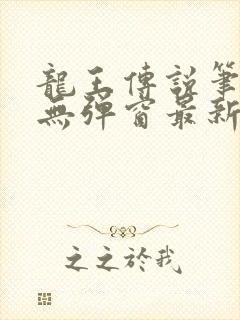 龍王傳說筆
無彈窗最新
之之於我